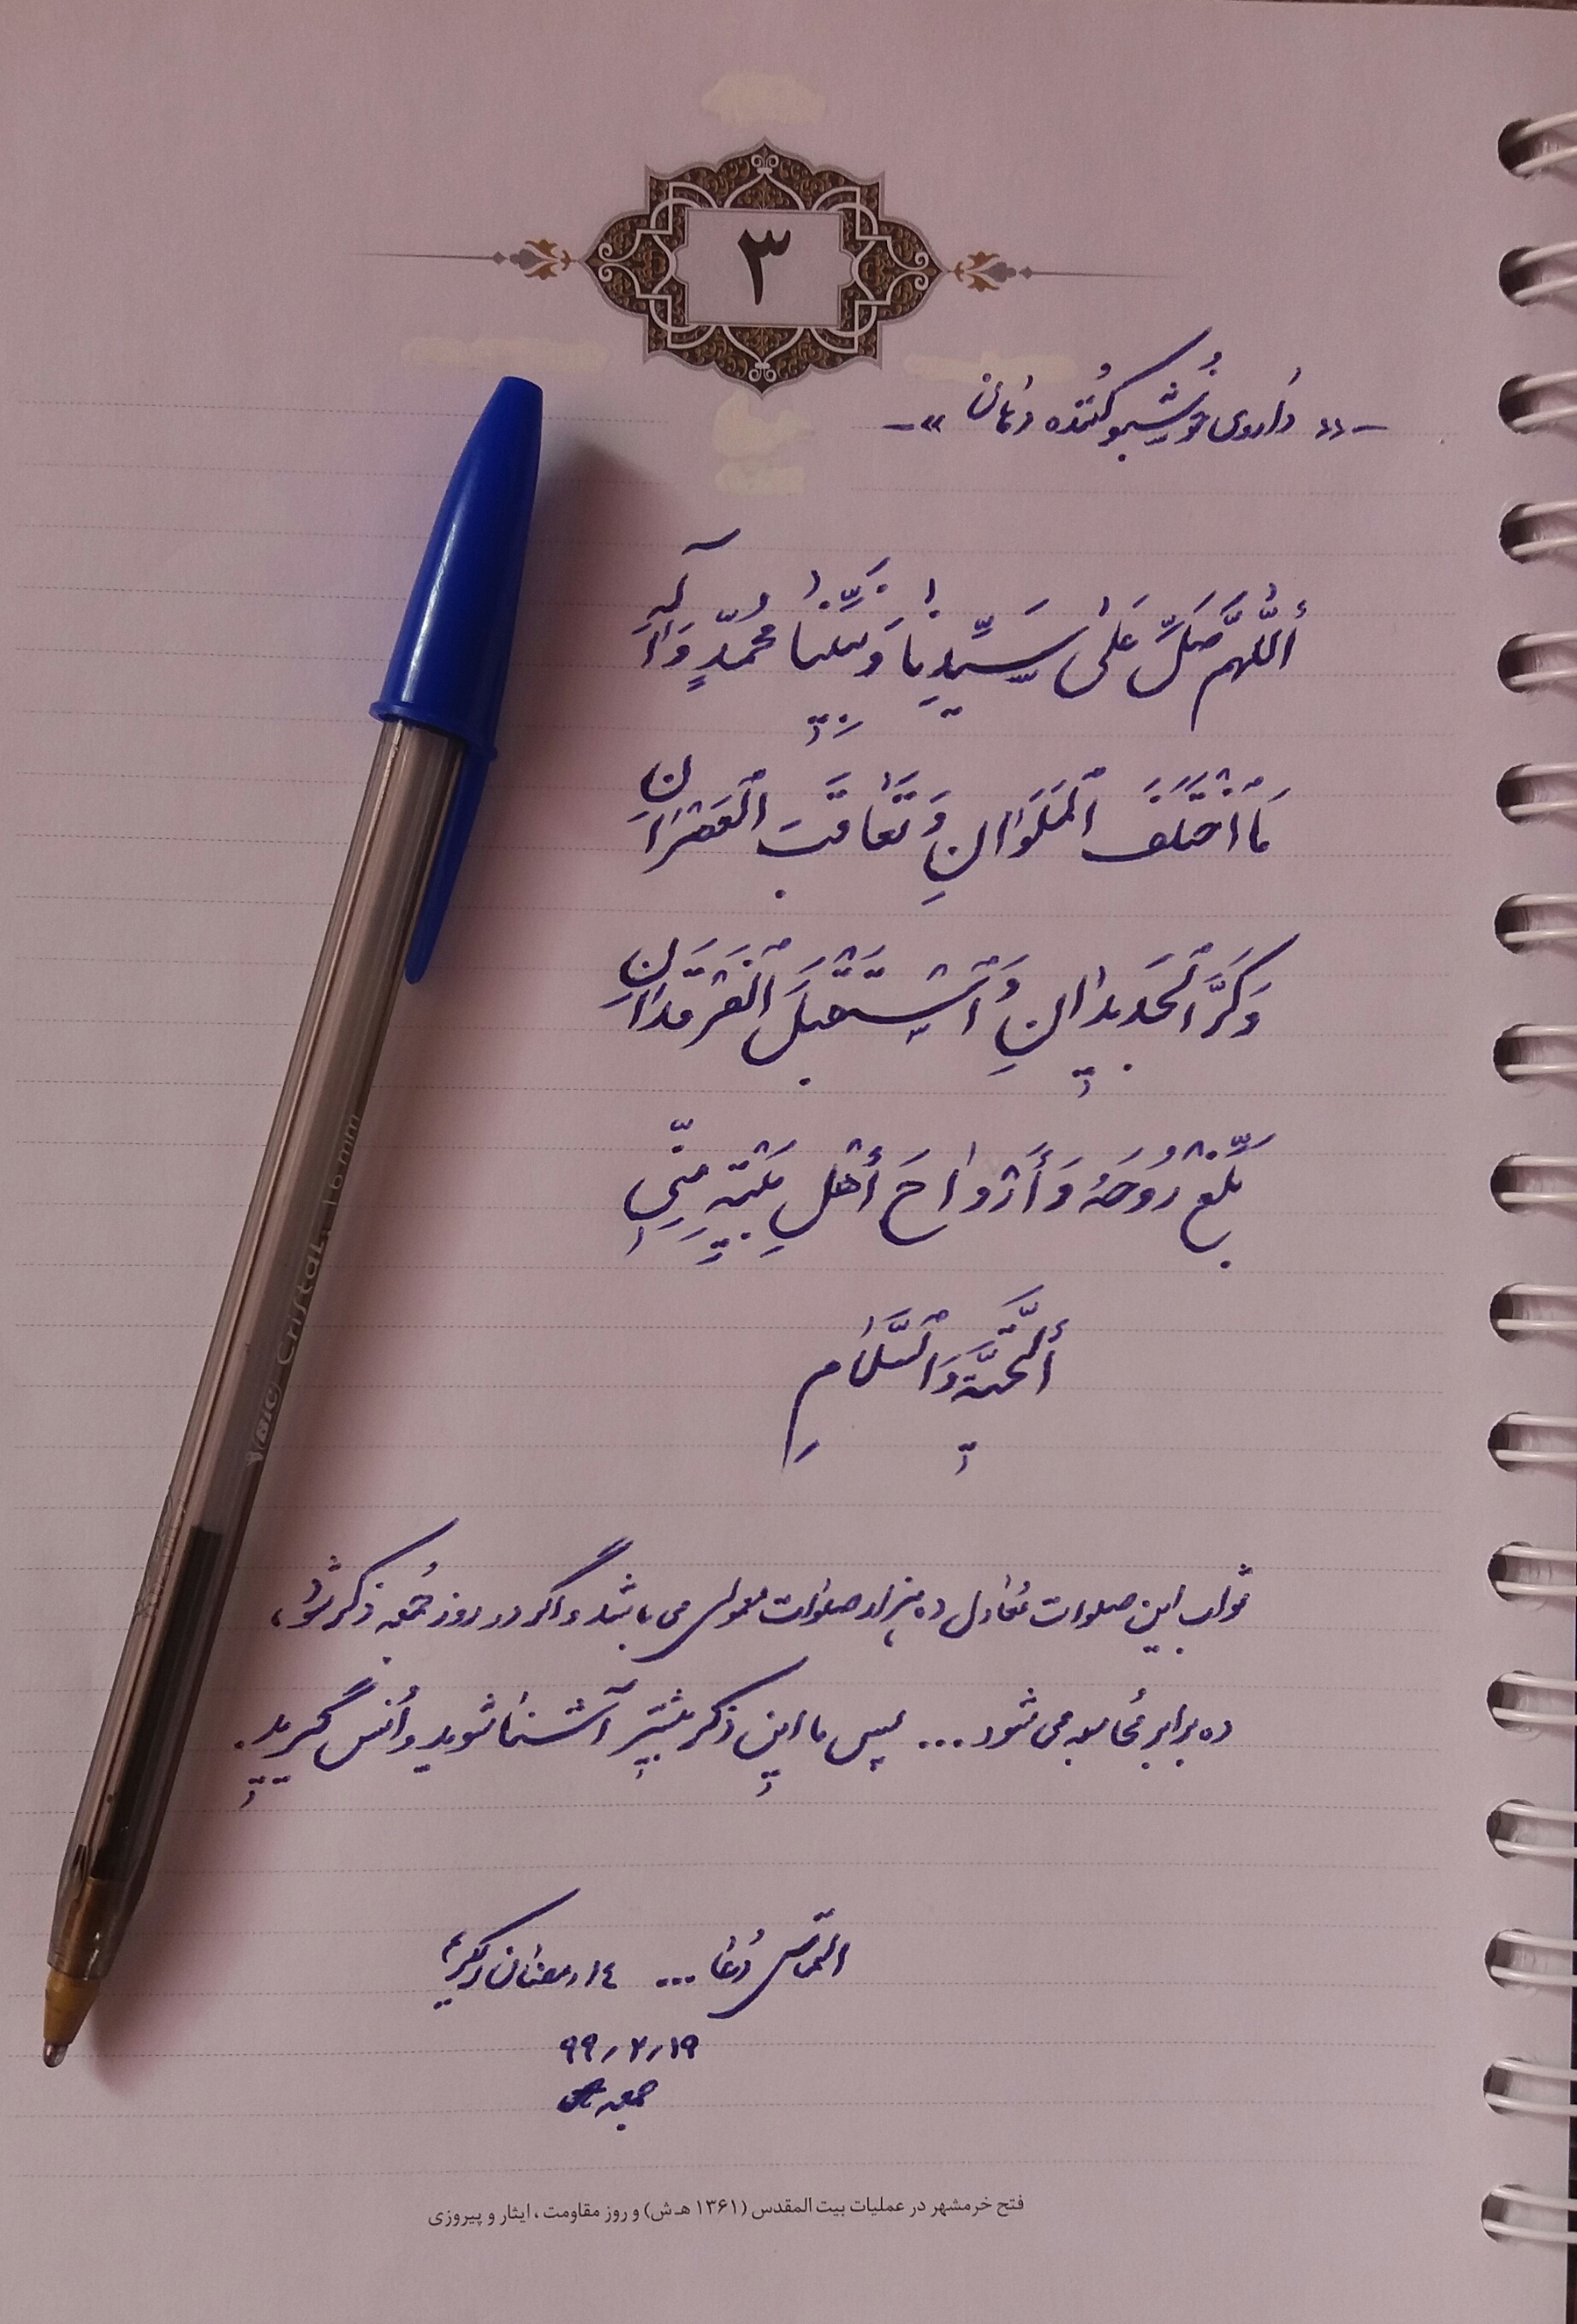 ٣
-«داروی خوشبو کُننده دهان»-
أَللّٰهُمَّ صَلِّ عَلىٰ سَيِّدِنٰا وَ نَبِيِّنٰا مُحَمَّدٍ وَآلِهِ
مَا اخْتَلَفَ الْمَلَوٰانِ وَ تَعٰاقَبَ الْعَصْرَانِ
وَ كَرَّ الْجَدِيدٰانِ وَ اسْتَقْبَلَ الْفَرْقَدَانِ
بَلِّغْ رُوحَهُ وَ أَرْوٰاحَ أَهْلِ بَيْتِهِ مِنِّي
أَلتَّحِيَّةَ وَ السَّلٰامِ
ثواب این صلوات مُعادل ده هزار صلوات معمولی می باشد و اگر در روز جُمعه ذکر شود،
ده برابر مُحاسبه می شود... پس با این ذکر بیشتر آشنا شوید و اُنس گیرید.
التماس دُعا ... ١٤ رمضان
٩٩/٢/١٩
جمعه
فتح خرمشهر در عملیات بیت المقدس (۱۳۶۱ هـ ش) و روز مقاومت، ایثار و پیروزی
BIC Cristal 1.6mm